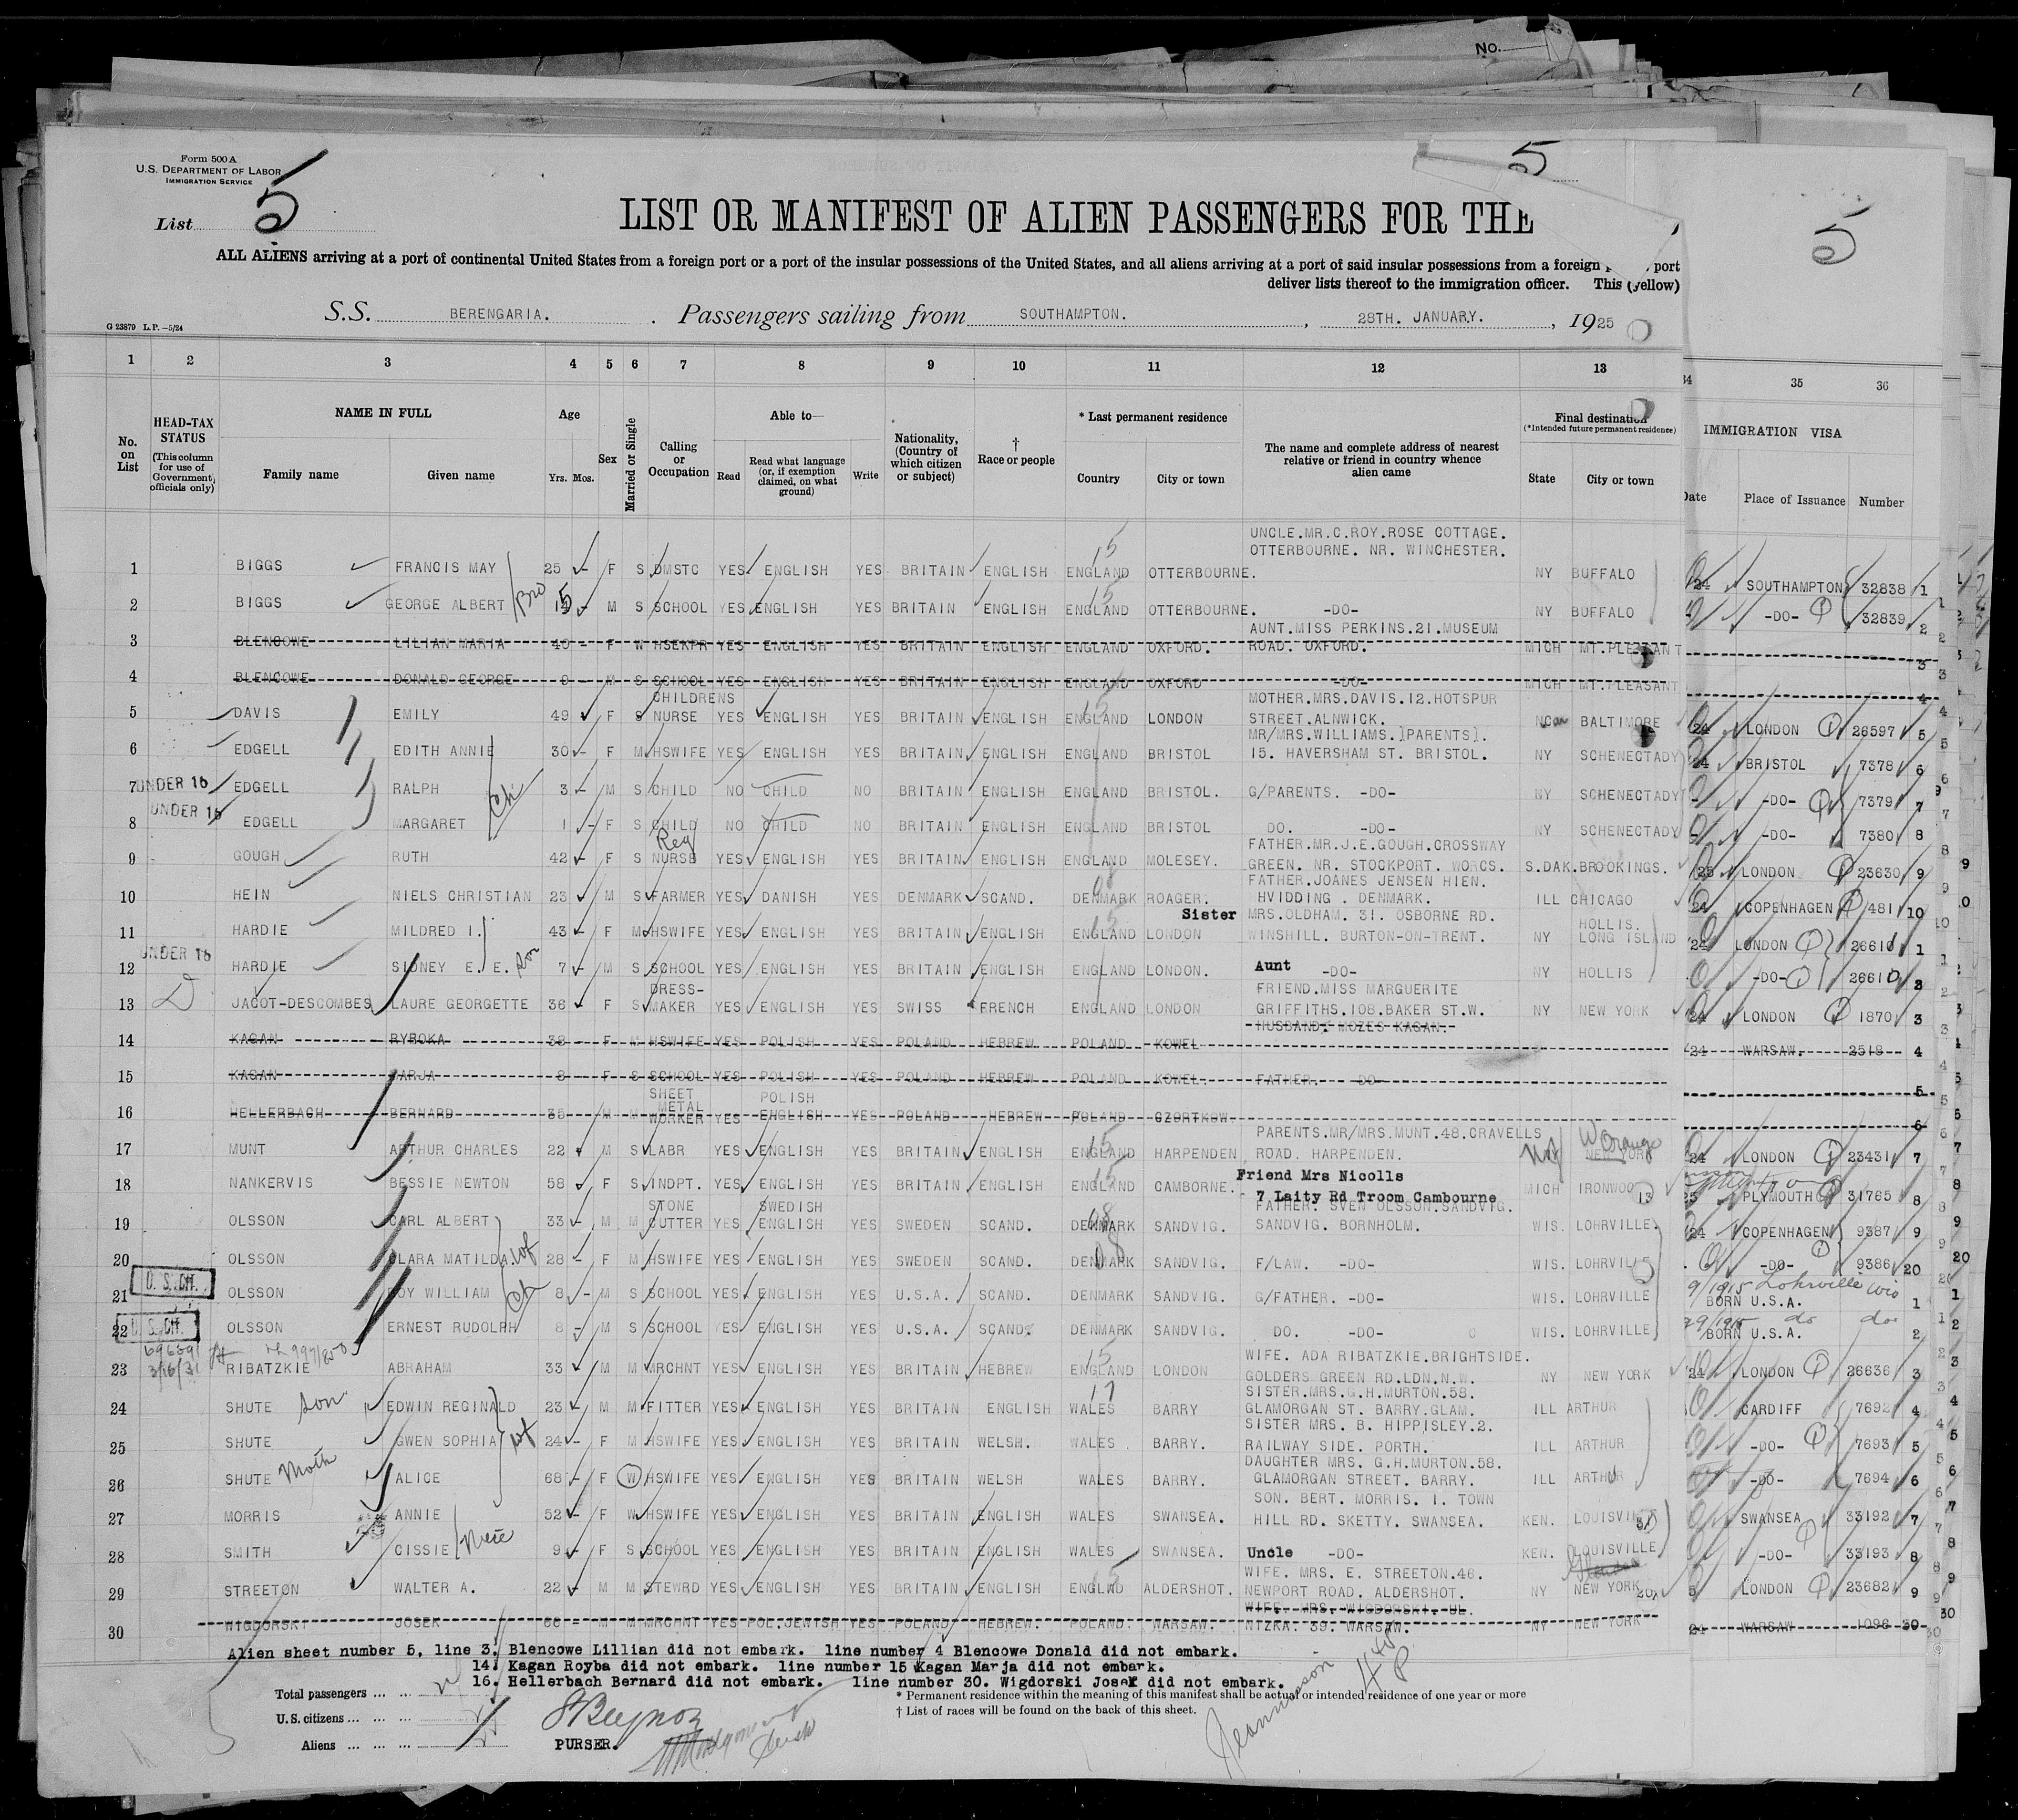 No.
Form 500 A
U.S. DEPARTMENT OF LABOR
IMMIGRATION SERVICE
List 5
5
5
LIST OR MANIFEST OF ALIEN PASSENGERS FOR THE
ALL ALIENS arriving at a port of continental United States from a foreign port or a port of the insular possessions of the United States, and all aliens arriving at a port of said insular possessions from a foreign port
deliver lists thereof to the immigration officer. This (yellow)
G 23879 L.P.—5/24
S.S. BERENGARIA. Passengers sailing from SOUTHAMPTON. , 28TH. JANUARY. , 1925
1 2 3 4 5 6 7 8 9 10 11 12 13 34 35 36
No. on List
HEAD-TAX STATUS (This column for use of Government officials only)
NAME IN FULL
Family name Given name
Age
Yrs. Mos.
Sex
Married or Single
Calling or Occupation
Able to—
Read Read what language (or, if exemption claimed, on what ground) Write
Nationality, (Country of which citizen or subject)
† Race or people
* Last permanent residence
Country City or town
The name and complete address of nearest relative or friend in country whence alien came
Final destination
(*Intended future permanent residence)
State City or town
IMMIGRATION VISA
Date Place of Issuance Number
UNCLE.MR.C.ROY.ROSE COTTAGE.
OTTERBOURNE. NR. WINCHESTER.
1 BIGGS FRANCIS MAY 25 F S DMSTC YES ENGLISH YES BRITAIN ENGLISH ENGLAND OTTERBOURNE. NY BUFFALO 24 SOUTHAMPTON 32838 1
2 BIGGS GEORGE ALBERT Bro 15 M S SCHOOL YES ENGLISH YES BRITAIN ENGLISH ENGLAND OTTERBOURNE. -DO- NY BUFFALO -DO- 32839 2
AUNT.MISS PERKINS.21.MUSEUM
3 BLENCOWE LILIAN MARIA 40 F W HSEKPR YES ENGLISH YES BRITAIN ENGLISH ENGLAND OXFORD. ROAD. OXFORD. MICH MT.PLEASANT 3
4 BLENCOWE DONALD GEORGE 9 M S SCHOOL YES ENGLISH YES BRITAIN ENGLISH ENGLAND OXFORD -DO- MICH MT.PLEASANT 4
CHILDRENS MOTHER.MRS.DAVIS.12.HOTSPUR
5 DAVIS EMILY 49 F S NURSE YES ENGLISH YES BRITAIN ENGLISH ENGLAND LONDON STREET.ALNWICK. BALTIMORE 24 LONDON 26597 5
MR/MRS.WILLIAMS.]PARENTS].
6 EDGELL EDITH ANNIE 30 F M HSWIFE YES ENGLISH YES BRITAIN ENGLISH ENGLAND BRISTOL 15. HAVERSHAM ST. BRISTOL. NY SCHENECTADY 24 BRISTOL 7378 6
7 UNDER 16 EDGELL RALPH Ch 3 M S CHILD NO CHILD NO BRITAIN ENGLISH ENGLAND BRISTOL. G/PARENTS. -DO- NY SCHENECTADY -DO- 7379 7
8 UNDER 16 EDGELL MARGARET 1 F S CHILD NO CHILD NO BRITAIN ENGLISH ENGLAND BRISTOL DO. -DO- NY SCHENECTADY -DO- 7380 8
Reg FATHER.MR.J.E.GOUGH.CROSSWAY
9 GOUGH RUTH 42 F S NURSE YES ENGLISH YES BRITAIN ENGLISH ENGLAND MOLESEY. GREEN. NR. STOCKPORT. WORCS. S.DAK. BROOKINGS. 25 LONDON 23630 9
FATHER.JOANES JENSEN HIEN.
10 HEIN NIELS CHRISTIAN 23 M S FARMER YES DANISH YES DENMARK SCAND. DENMARK ROAGER. HVIDDING . DENMARK. ILL CHICAGO 24 COPENHAGEN 481 10
Sister MRS.OLDHAM. 31. OSBORNE RD. HOLLIS.
11 HARDIE MILDRED I. 43 F M HSWIFE YES ENGLISH YES BRITAIN ENGLISH ENGLAND LONDON WINSHILL. BURTON-ON-TRENT. NY LONG ISLAND 24 LONDON 26610 1
12 UNDER 16 HARDIE SIDNEY E. E. Son 7 M S SCHOOL YES ENGLISH YES BRITAIN ENGLISH ENGLAND LONDON. Aunt -DO- NY HOLLIS -DO- 26610 2
DRESS- FRIEND.MISS MARGUERITE
13 JACOT-DESCOMBES LAURE GEORGETTE 36 F S MAKER YES ENGLISH YES SWISS FRENCH ENGLAND LONDON GRIFFITHS.108.BAKER ST.W. NY NEW YORK 24 LONDON 1870 3
HUSBAND: MOZES KAGAN.
14 KAGAN RYBOKA 38 F M HSWIFE YES POLISH YES POLAND HEBREW POLAND KOWEL 24 WARSAW. 2518 4
15 KAGAN MARJA 8 F S SCHOOL YES POLISH YES POLAND HEBREW POLAND KOWEL. FATHER. DO 5
SHEET METAL POLISH
16 HELLERBACH BERNARD 35 M M WORKER YES ENGLISH YES POLAND HEBREW POLAND CZORTKOW 6
PARENTS.MR/MRS.MUNT.48.CRAVELLS W Orange
17 MUNT ARTHUR CHARLES 22 M S LABR YES ENGLISH YES BRITAIN ENGLISH ENGLAND HARPENDEN ROAD. HARPENDEN. NJ NEW YORK 24 LONDON 23431 7
Friend Mrs Nicolls
18 NANKERVIS BESSIE NEWTON 58 F S INDPT. YES ENGLISH YES BRITAIN ENGLISH ENGLAND CAMBORNE. 7 Laity Rd Troom Cambourne MICH IRONWOOD 25 PLYMOUTH 31765 8
STONE SWEDISH FATHER. SVEN OLSSON.SANDVIG.
19 OLSSON CARL ALBERT 33 M M CUTTER YES ENGLISH YES SWEDEN SCAND. DENMARK SANDVIG. SANDVIG. BORNHOLM. WIS. LOHRVILLE. 24 COPENHAGEN 9387 9
20 OLSSON CLARA MATILDA. wf 28 F M HSWIFE YES ENGLISH YES SWEDEN SCAND. DENMARK SANDVIG. F/LAW. -DO- WIS. LOHRVILLE -DO- 9386 20
21 U. S. CIT. OLSSON ROY WILLIAM Ch 8 M S SCHOOL YES ENGLISH YES U.S.A. SCAND. DENMARK SANDVIG. G/FATHER. -DO- WIS. LOHRVILLE 9/1915 Lohrville Wis BORN U.S.A. 1
22 U. S. CIT. OLSSON ERNEST RUDOLPH 8 M S SCHOOL YES ENGLISH YES U.S.A. SCAND. DENMARK SANDVIG. DO. -DO- WIS. LOHRVILLE do do BORN U.S.A. 2
3/16/31 WIFE. ADA RIBATZKIE.BRIGHTSIDE.
23 RIBATZKIE ABRAHAM 33 M M MRCHNT YES ENGLISH YES BRITAIN HEBREW ENGLAND LONDON GOLDERS GREEN RD.LDN.N.W. NY NEW YORK 24 LONDON 26636 3
SISTER.MRS.G.H.MURTON.58.
24 SHUTE Son EDWIN REGINALD 23 M M FITTER YES ENGLISH YES BRITAIN ENGLISH WALES BARRY GLAMORGAN ST. BARRY.GLAM. ILL ARTHUR CARDIFF 7692 4
SISTER MRS. B. HIPPISLEY.2.
25 SHUTE GWEN SOPHIA wf 24 F M HSWIFE YES ENGLISH YES BRITAIN WELSH. WALES BARRY. RAILWAY SIDE. PORTH. ILL ARTHUR -DO- 7693 5
DAUGHTER MRS. G.H.MURTON.58.
26 SHUTE Moth ALICE 68 F W HSWIFE YES ENGLISH YES BRITAIN WELSH WALES BARRY. GLAMORGAN STREET. BARRY. ILL ARTHUR -DO- 7694 6
SON. BERT. MORRIS. I. TOWN
27 MORRIS ANNIE 52 F W HSWIFE YES ENGLISH YES BRITAIN ENGLISH WALES SWANSEA. HILL RD. SKETTY. SWANSEA. KEN. LOUISVILLE SWANSEA 33192 7
28 SMITH CISSIE Niece 9 F S SCHOOL YES ENGLISH YES BRITAIN ENGLISH WALES SWANSEA. Uncle -DO- KEN. LOUISVILLE -DO- 33193 8
WIFE. MRS. E. STREETON.46.
29 STREETON WALTER A. 22 M M STEWRD YES ENGLISH YES BRITAIN ENGLISH ENGLND ALDERSHOT. NEWPORT ROAD. ALDERSHOT. NY NEW YORK LONDON 23682 9
WIFE. MRS. WIGDORSKI. UL.
30 WIGDORSKI JOSEK 66 M M MRCHNT YES POL.JEWISH YES POLAND HEBREW. POLAND. WARSAW. NTZKA. 39. WARSAW. NY NEW YORK 24 WARSAW 1096 30
Alien sheet number 5, line 3. Blencowe Lillian did not embark. line number 4 Blencowe Donald did not embark.
14. Kagan Royba did not embark. line number 15 Kagan Marja did not embark.
16. Hellerbach Bernard did not embark. line number 30. Wigdorski Josek did not embark.
Total passengers
U.S. citizens
Aliens
PURSER.
* Permanent residence within the meaning of this manifest shall be actual or intended residence of one year or more
† List of races will be found on the back of this sheet.